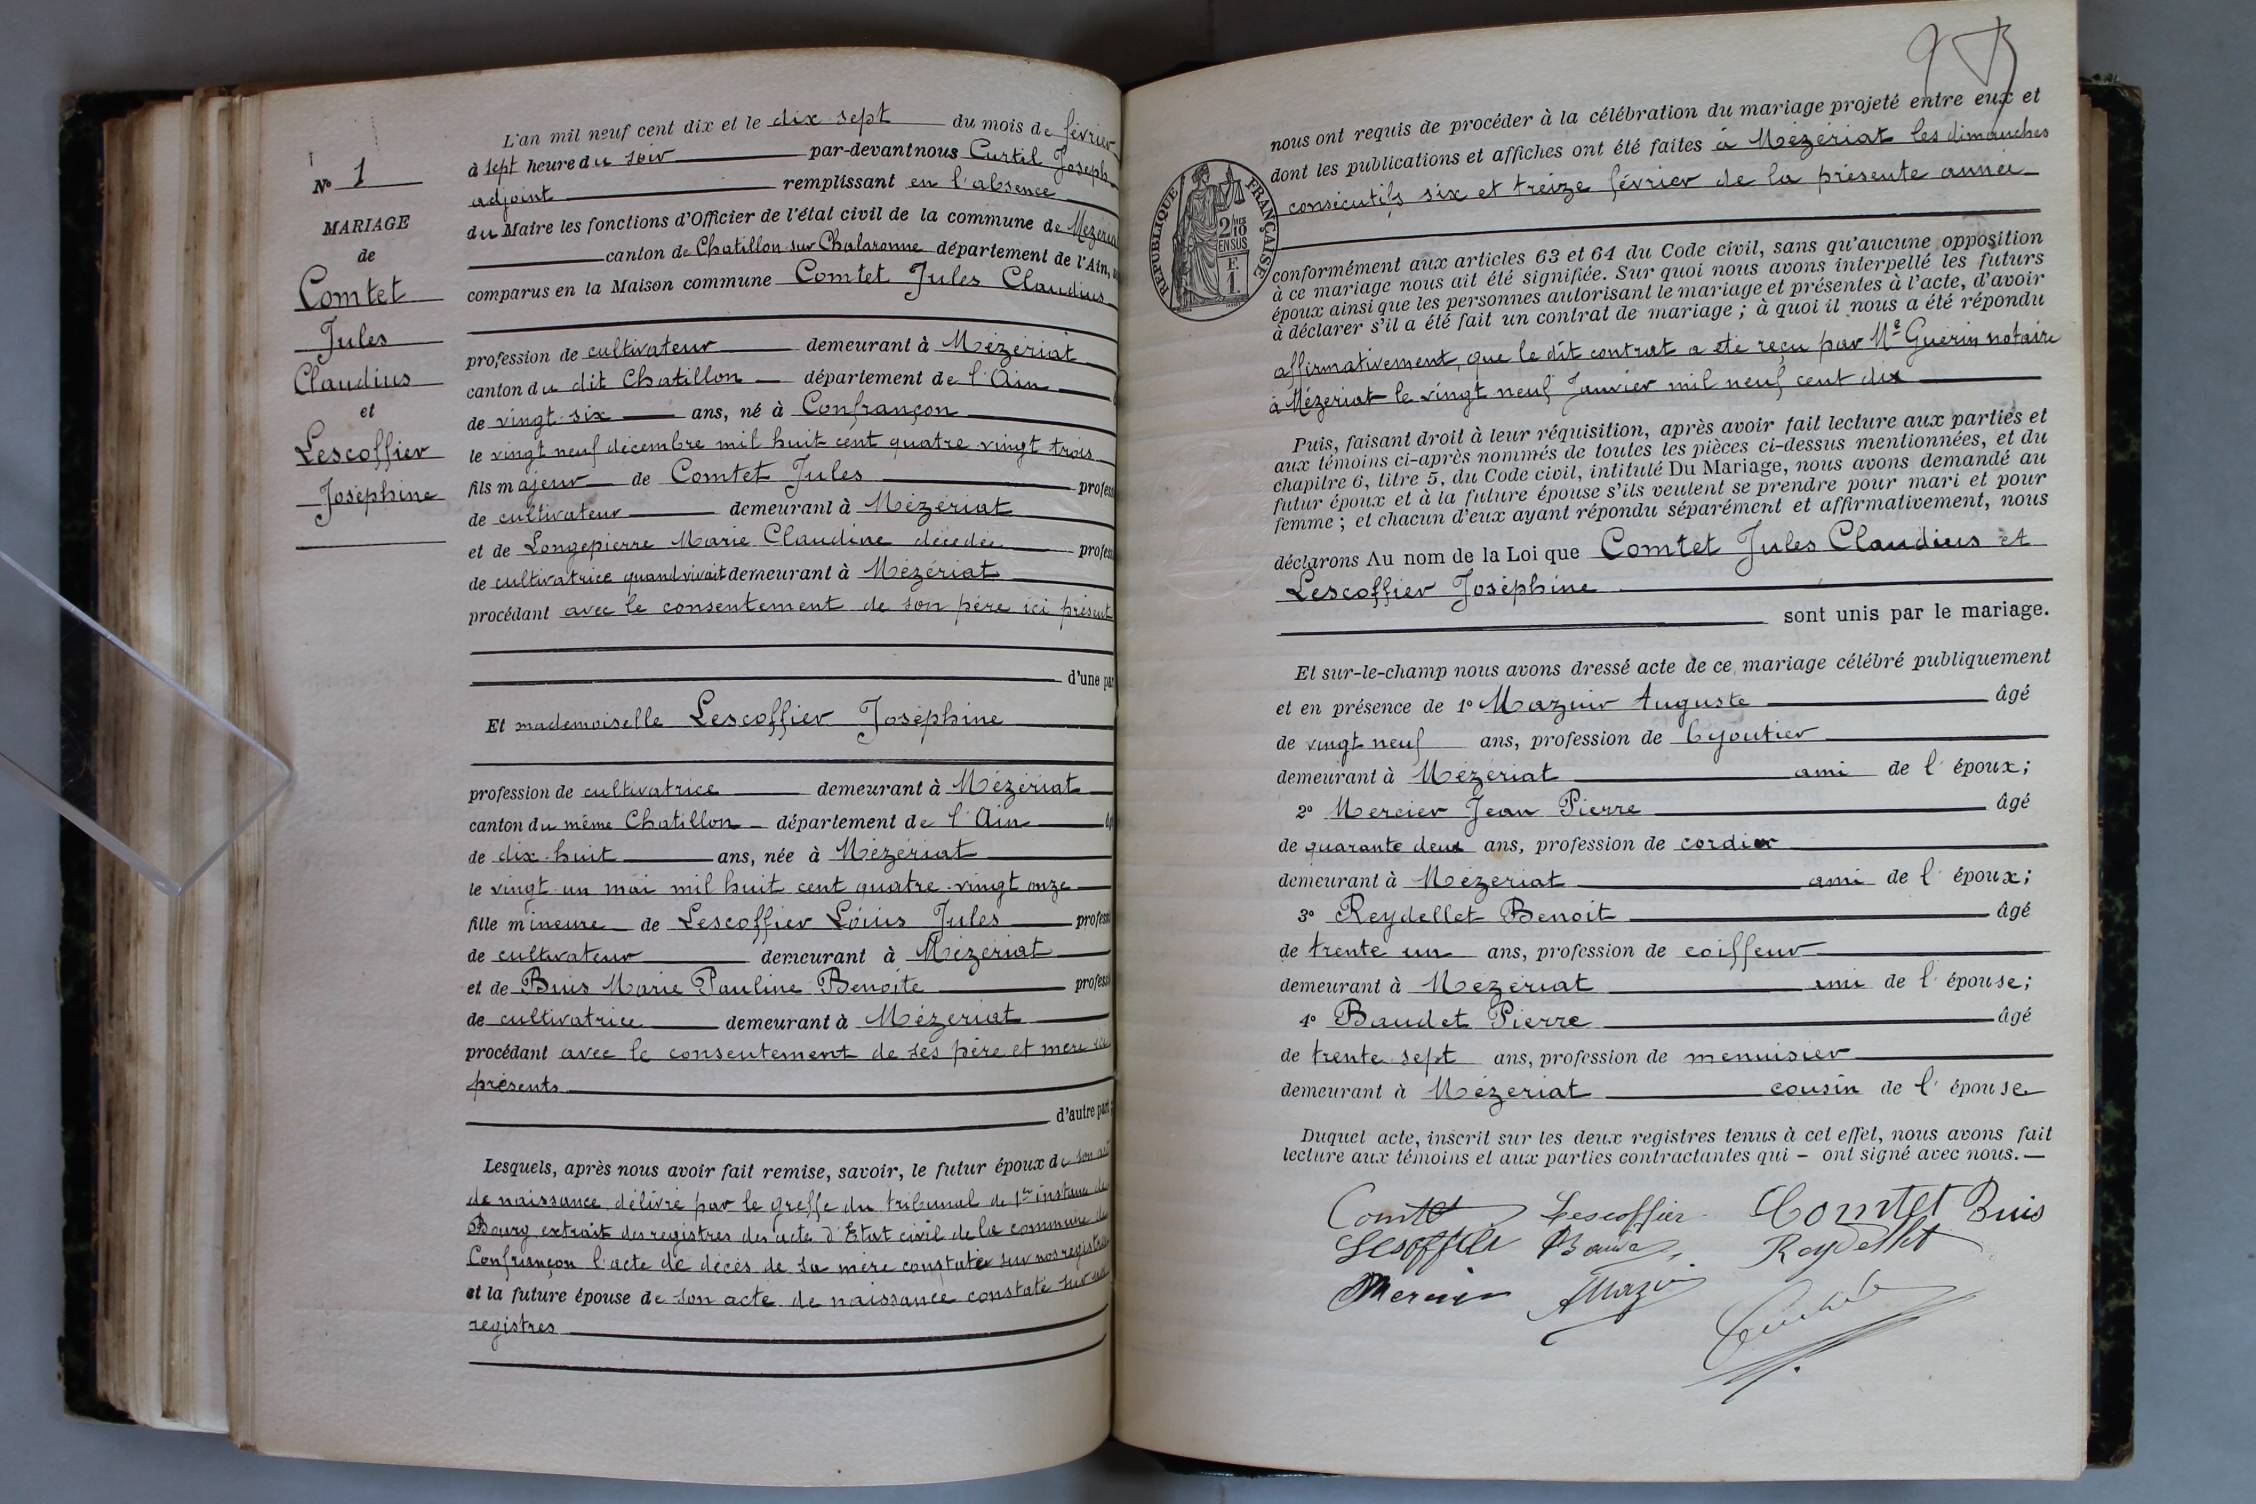 N° 1
MARIAGE
de
Comtet
Jules
Claudius
et
Lescoffier
Joséphine
L'an mil neuf cent dix et le dix sept du mois de février
à sept heure du soir par-devant nous Curtil Joseph
adjoint remplissant en l'absence
du Maire les fonctions d'Officier de l'état civil de la commune de Mézériat
canton de Chatillon sur Chalaronne département de l'Ain,
comparus en la Maison commune Comtet Jules Claudius
profession de cultivateur demeurant à Mézériat
canton du dit Chatillon département de l'Ain
de vingt six ans, né à Confrançon
le vingt neuf décembre mil huit cent quatre vingt trois
fils majeur de Comtet Jules profess
de cultivateur demeurant à Mézériat
et de Longepierre Marie Claudine décédée profess
de cultivatrice quand vivait demeurant à Mézériat
procédant avec le consentement de son père ici présent
d'une par
Et mademoiselle Lescoffier Joséphine
profession de cultivatrice demeurant à Mézériat
canton du même Chatillon département de l'Ain
de dix-huit ans, née à Mézériat
le vingt un mai mil huit cent quatre-vingt onze
fille mineure de Lescoffier Louis Jules professi
de cultivateur demeurant à Mézériat
et de Buis Marie Pauline Benoite professi
de cultivatrice demeurant à Mézériat
procédant avec le consentement de ses père et mère ici
présents
d'autre part;
Lesquels, après nous avoir fait remise, savoir, le futur époux de son acte
de naissance délivré par le greffe du tribunal de 1re instance de
Bourg extrait des registres des acte d'Etat civil de la commune de
Confrançon l'acte de décès de sa mère constatée sur nos registres
et la future épouse de son acte de naissance constaté sur nos
registres
9
nous ont requis de procéder à la célébration du mariage projeté entre eux et
dont les publications et affiches ont été faites à Mézériat les dimanches
consécutifs six et treize février de la présente année
RÉPUBLIQUE FRANÇAISE
2/10 EN SUS
E.
1.
conformément aux articles 63 et 64 du Code civil, sans qu'aucune opposition
à ce mariage nous ait été signifiée. Sur quoi nous avons interpellé les futurs
époux ainsi que les personnes autorisant le mariage et présentes à l'acte, d'avoir
à déclarer s'il a été fait un contrat de mariage; à quoi il nous a été répondu
affirmativement, que le dit contrat a été reçu par Me Guérin notaire
à Mézériat le vingt neuf Janvier mil neuf cent dix
Puis, faisant droit à leur réquisition, après avoir fait lecture aux parties et
aux témoins ci-après nommés de toutes les pièces ci-dessus mentionnées, et du
chapitre 6, titre 5, du Code civil, intitulé Du Mariage, nous avons demandé au
futur époux et à la future épouse s'ils veulent se prendre pour mari et pour
femme; et chacun d'eux ayant répondu séparément et affirmativement, nous
déclarons Au nom de la Loi que Comtet Jules Claudius et
Lescoffier Joséphine
sont unis par le mariage.
Et sur-le-champ nous avons dressé acte de ce mariage célébré publiquement
et en présence de 1° Mazuir Auguste âgé
de vingt neuf ans, profession de byoutier
demeurant à Mézériat ami de l'époux;
2° Mercier Jean Pierre âgé
de quarante deux ans, profession de cordier
demeurant à Mézériat ami de l'époux;
3° Reydellet Benoit âgé
de trente un ans, profession de coiffeur
demeurant à Mézériat ami de l'épouse;
4° Baudet Pierre âgé
de trente sept ans, profession de menuisier
demeurant à Mézériat cousin de l'épouse
Duquel acte, inscrit sur les deux registres tenus à cet effet, nous avons fait
lecture aux témoins et aux parties contractantes qui - ont signé avec nous. —
Comtet Lescoffier Comtet Buis
Lescoffier Baudet Reydellet
Mercier AMazuir